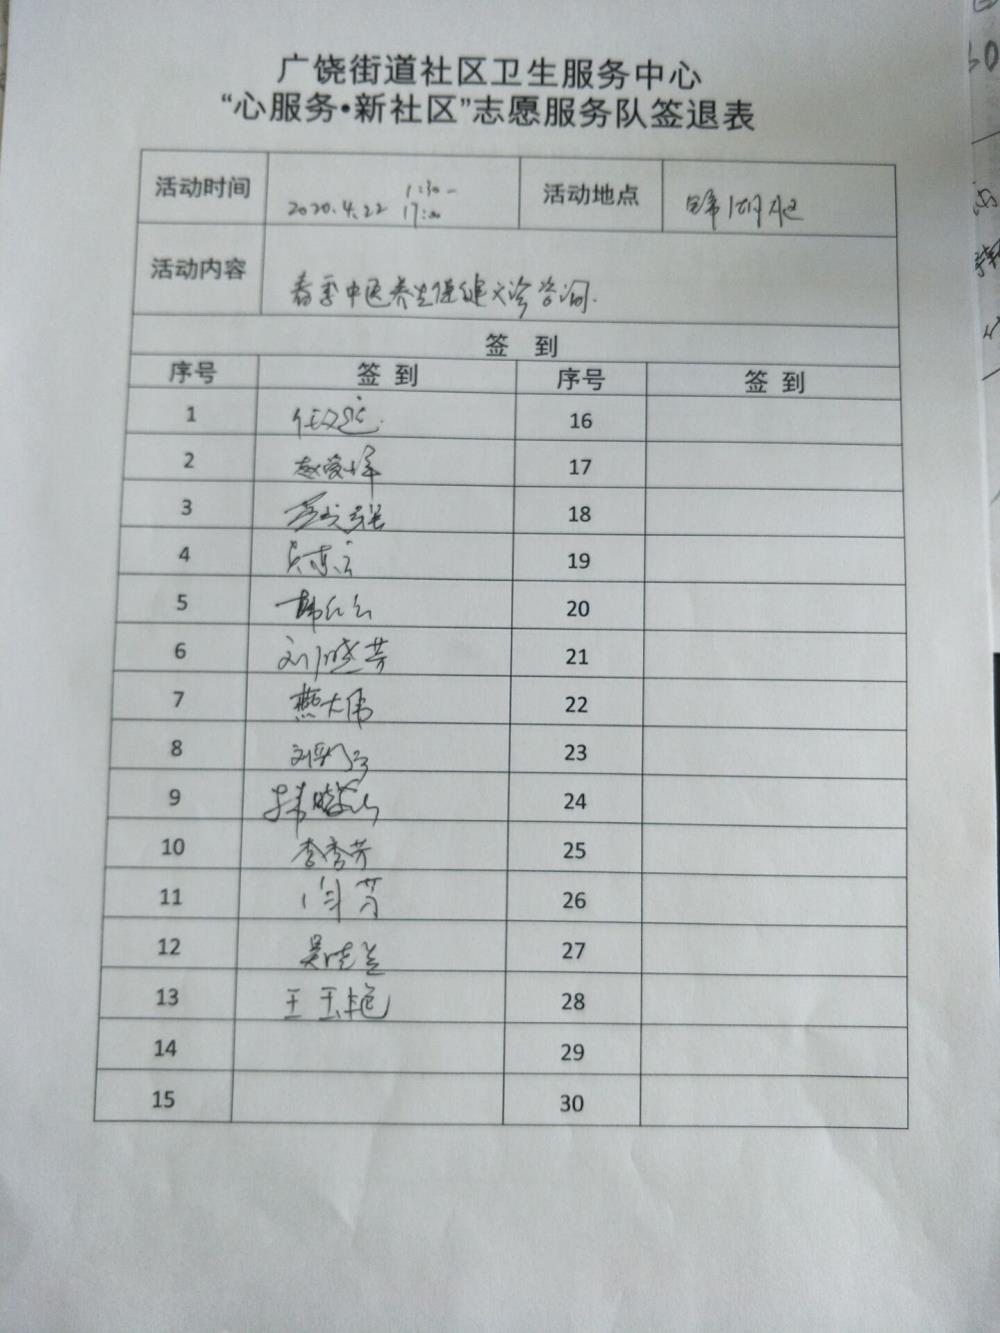 广饶街道社区卫生服务中心
“心服务•新社区”志愿服务队签退表
活动时间 2020.4.22 1:30- 17:00 活动地点
活动内容 春季中医养生保健义诊咨询.
签 到
序号 签 到 序号 签 到
1 16
2 17
3 18
4 19
5 20
6 刘晓芳 21
7 燕大伟 22
8 23
9 24
10 李秀芳 25
11 闫芳 26
12 吴晓兰 27
13 王玉艳 28
14 29
15 30